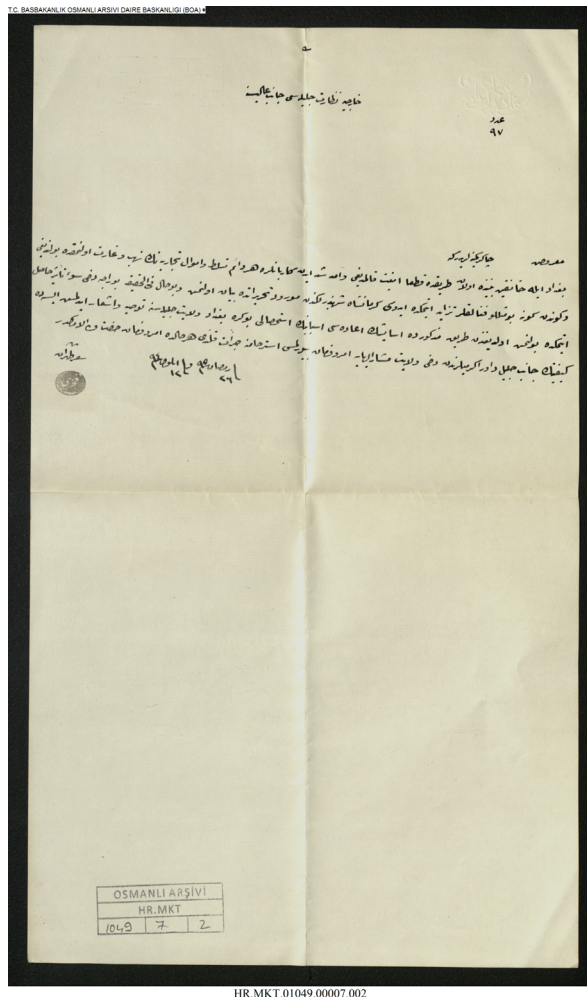 T.C. BASBAKANLIK OSMANLI ARSIVI DAIRE BASKANLIGI (BOA)
خارجیه نظارت جلیله‌سی جانب عالیسنه
عدد
٩٧
معروض چاکرکمینه‌لریدرکه
بغداد ایله خانقین بیننده اولان طریقده قطعا امنیت قالمدیغی و آمد شد ایدن کاربانلره هر دائم تسلط و اموال تجاریه‌نك نهب و غارت اولنمقده بولندیغی
وکوندن کونه بو مثللو فنالقلر تزاید ایتمکده ایدوکی کرمانشاه شهبندرلکندن مورود تحریراتده بیان اولنمش و بو حال فی الحقیقه بورایه دخی سوء تأثیر حاصل
ایتمکده بولنمش اولدیغندن طریق مذکورده آسایشك اعاده‌سی اسبابنك استحصالی بوکره بغداد ولایت جلیله‌سنه توصیه و اشعار ایدلمش ایسه‌ده
کیفیتك جانب جلیل داورا کرمیلرندن دخی ولایت مشارالیهایه امر و فرمان بیورلمسی استرحامنه جرأت قلندی هر حالده امر و فرمان حضرت من له الامرکدر
فی ٢٦ رمضان
١٢
OSMANLI ARŞİVİ
HR.MKT
1049 7 2
HR.MKT.01049.00007.002